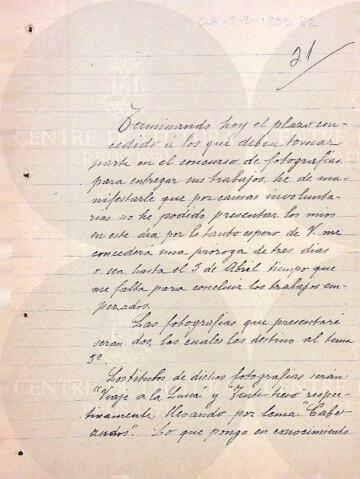 CLR-T-2-1905-22
21
Terminando hoy el plazo con-
cedido á los que deben tomar
parte en el concurso de fotografías
para entregar sus trabajos, he de ma-
nifestarle que por causas involunta-
rias no he podido presentar los mios
en este dia por lo tanto espero de V. me
concederá una proroga de tres dias
o sea, hasta el 3 de Abril tiempo que
me falta para concluir los trabajos em-
pezados.
Las fotografías que presentaré
serán dos, las cuales las destino al tema
5º
Los titulos de dichas fotografias serán:
"Viaje a la Luna" y respec-
tivamente llevando por lema "Cabe-
zudos". Lo que pongo en conocimiento
CENTRE DE
CENTRE
CENTRE